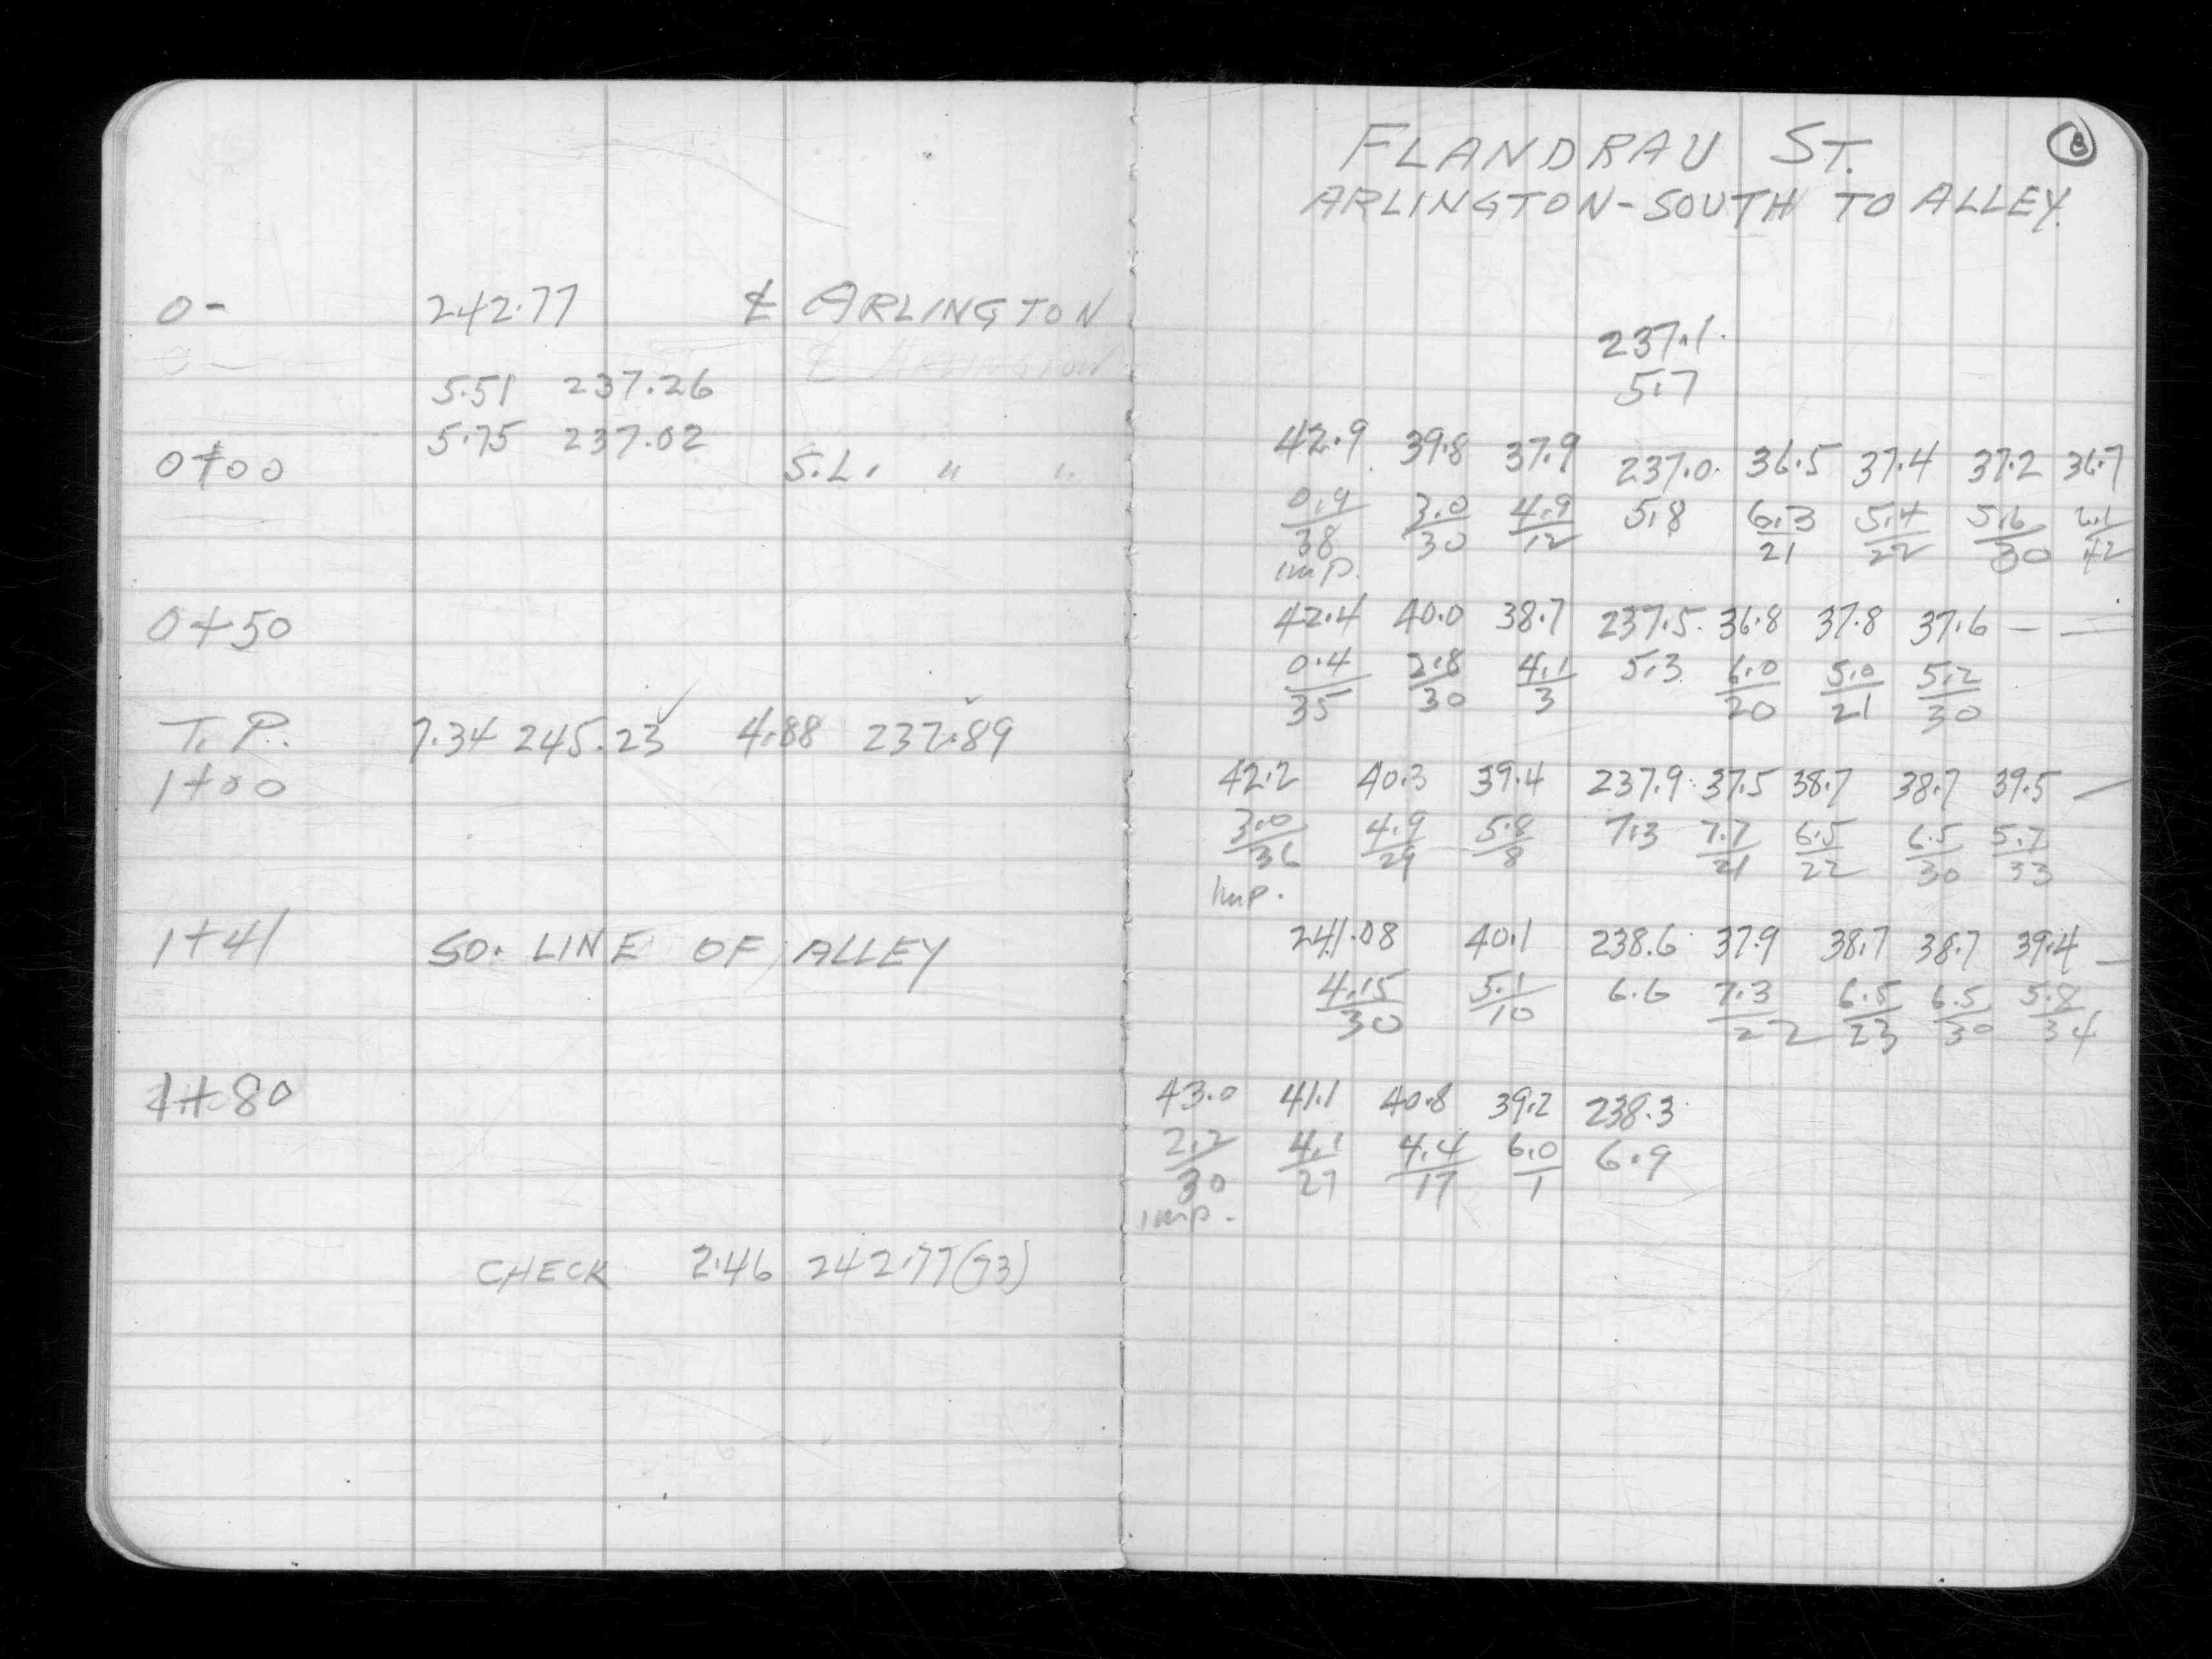 0- 242.77 ℄ ARLINGTON
℄ ARLINGTON
5.51 237.26
5.75 237.02
0+00 S.L. " "
0+50
T.P. 7.34 245.23 4.88 237.89
1+00
1+41 SO. LINE OF ALLEY
1+80
CHECK 2.46 242.77(73)
8
FLANDRAU ST.
ARLINGTON-SOUTH TO ALLEY.
237.1
5.7
42.9 39.8 37.9 237.0 36.5 37.4 37.2 36.7
3.0 4.9 5.8 6.3 5.4 5.6 6.1
38 30 12 21 22 30 42
imp.
42.4 40.0 38.7 237.5 36.8 37.8 37.6 — —
0.4 2.8 4.1 5.3 6.0 5.0 5.2
35 30 3 20 21 30
42.2 40.3 39.4 237.9 37.5 38.7 38.7 39.5 —
3.0 4.9 5.8 7.3 7.7 6.5 6.5 5.7
36 29 8 21 22 30 33
Imp.
241.08 40.1 238.6 37.9 38.7 38.7 39.4 —
4.15 5.1 6.6 7.3 6.5 6.5 5.8
30 10 22 23 30 34
43.0 41.1 40.8 39.2 238.3
2.2 4.1 4.4 6.0 6.9
30 27 17 1
imp.